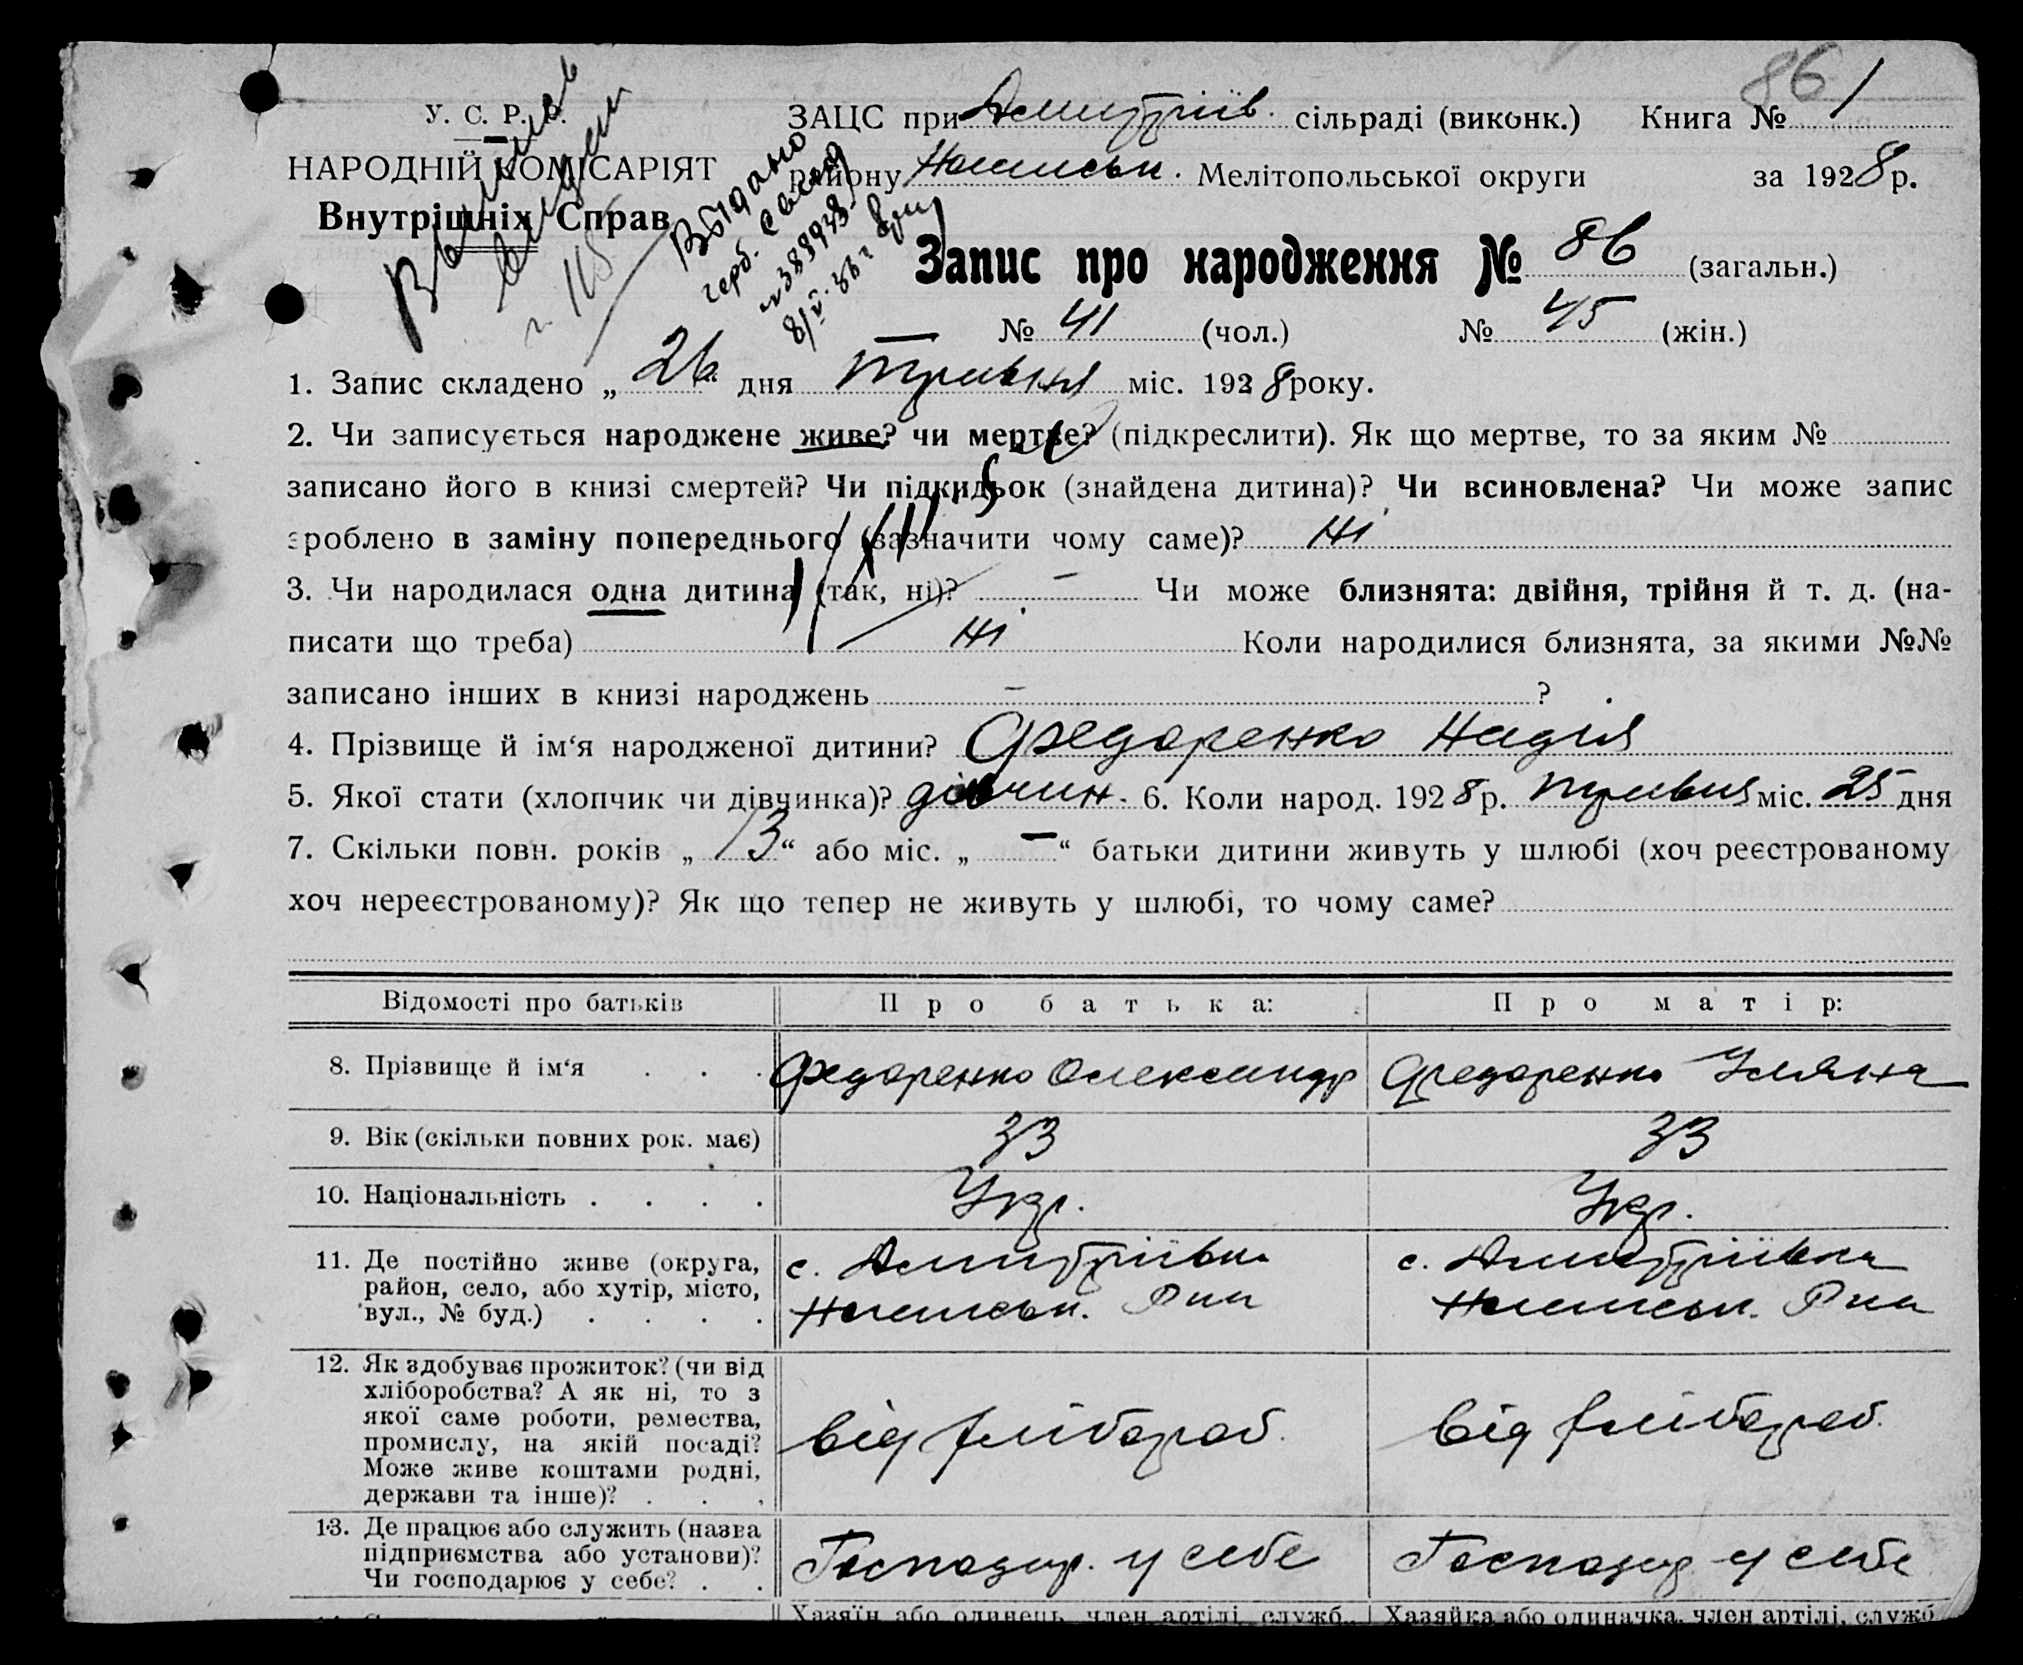 86 1
У. С. Р. Р.
НАРОДНІЙ КОМІСАРІЯТ
Внутрішніх Справ
Видано
герб.
№ 389973
8/V. 36 г
г. 115
ЗАЦС при Дмитріїв. сільраді (виконк.) Книга №
району Мелітопольської округи за 1928 р.
Запис про народження № 86 (загальн.)
№ 41 (чол.) № 45 (жін.)
1. Запис складено „ 26 " дня травня міс. 1928 року.
2. Чи записується народжене живе? чи мертве? (підкреслити). Як що мертве, то за яким №
записано його в книзі смертей? Чи підкидьок (знайдена дитина)? Чи всиновлена? Чи може запис
зроблено в заміну попереднього (зазначити чому саме)? ні
3. Чи народилася одна дитина (так, ні)? — Чи може близнята: двійня, трійня й т. д. (на-
писати що треба) ні Коли народилися близнята, за якими №№
записано інших в книзі народжень — ?
4. Прізвище й ім‘я народженої дитини? Федоренко Надія
5. Якої стати (хлопчик чи дівчинка)? дівчин. 6. Коли народ. 1928 р. травня міс. 25 дня
7. Скільки повн. років „ 13 “ або міс. „ — “ батьки дитини живуть у шлюбі (хоч реєстрованому
хоч нереєстрованому)? Як що тепер не живуть у шлюбі, то чому саме?
Відомості про батьків Про батька: Про матір:
8. Прізвище й ім‘я . . . Федоренко Олександр Федоренко Уляна
9. Вік (скільки повних рок. має) 33 33
10. Національність . . . . Укр. Укр.
11. Де постійно живе (округа, с. Дмитріївка с. Дмитріївка
район, село, або хутір, місто, Р-на Р-на
вул., № буд.) . . . .
12. Як здобуває прожиток? (чи від
хліборобства? А як ні, то з
якої саме роботи, ремества,
промислу, на якій посаді? від хлібороб. від хлібороб.
Може живе коштами родні,
держави та інше)? . . .
13. Де працює або служить (назва
підприємства або установи)? Господар. у себе Господар. у себе
Чи господарює у себе? . .
Хазяїн або одинець, член артілі, служб. Хазяйка або одиначка, член артілі, служб